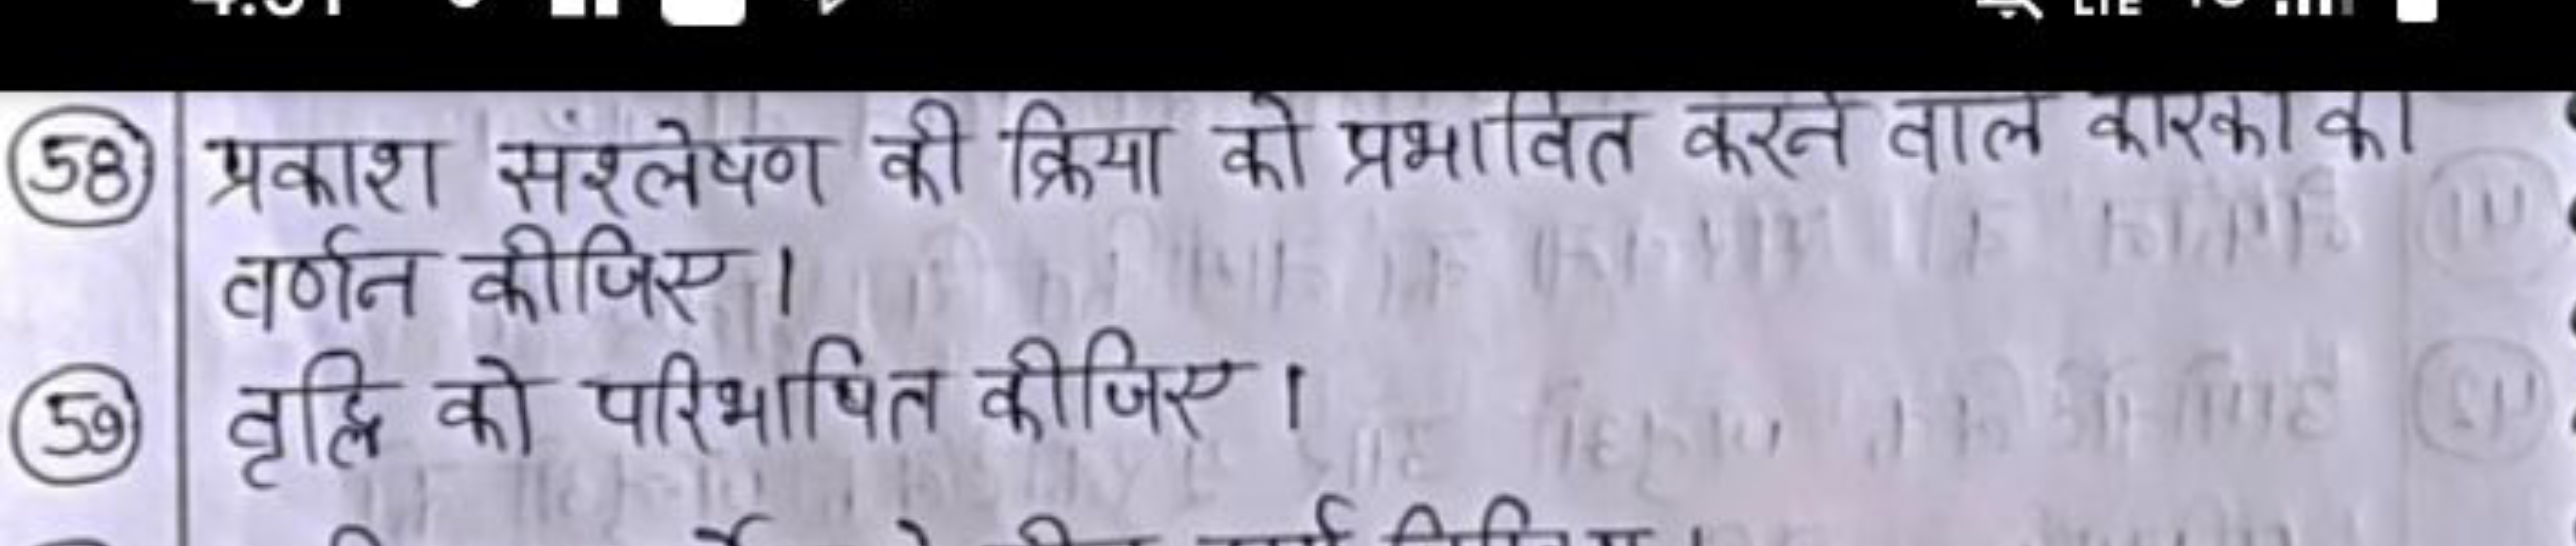 58 प्रकाश संश्लेषण की क्रिया को प्रभावित करने वाले कारकों का
वर्णन कीजिए।
59 वृद्धि को परिभाषित कीजिए।